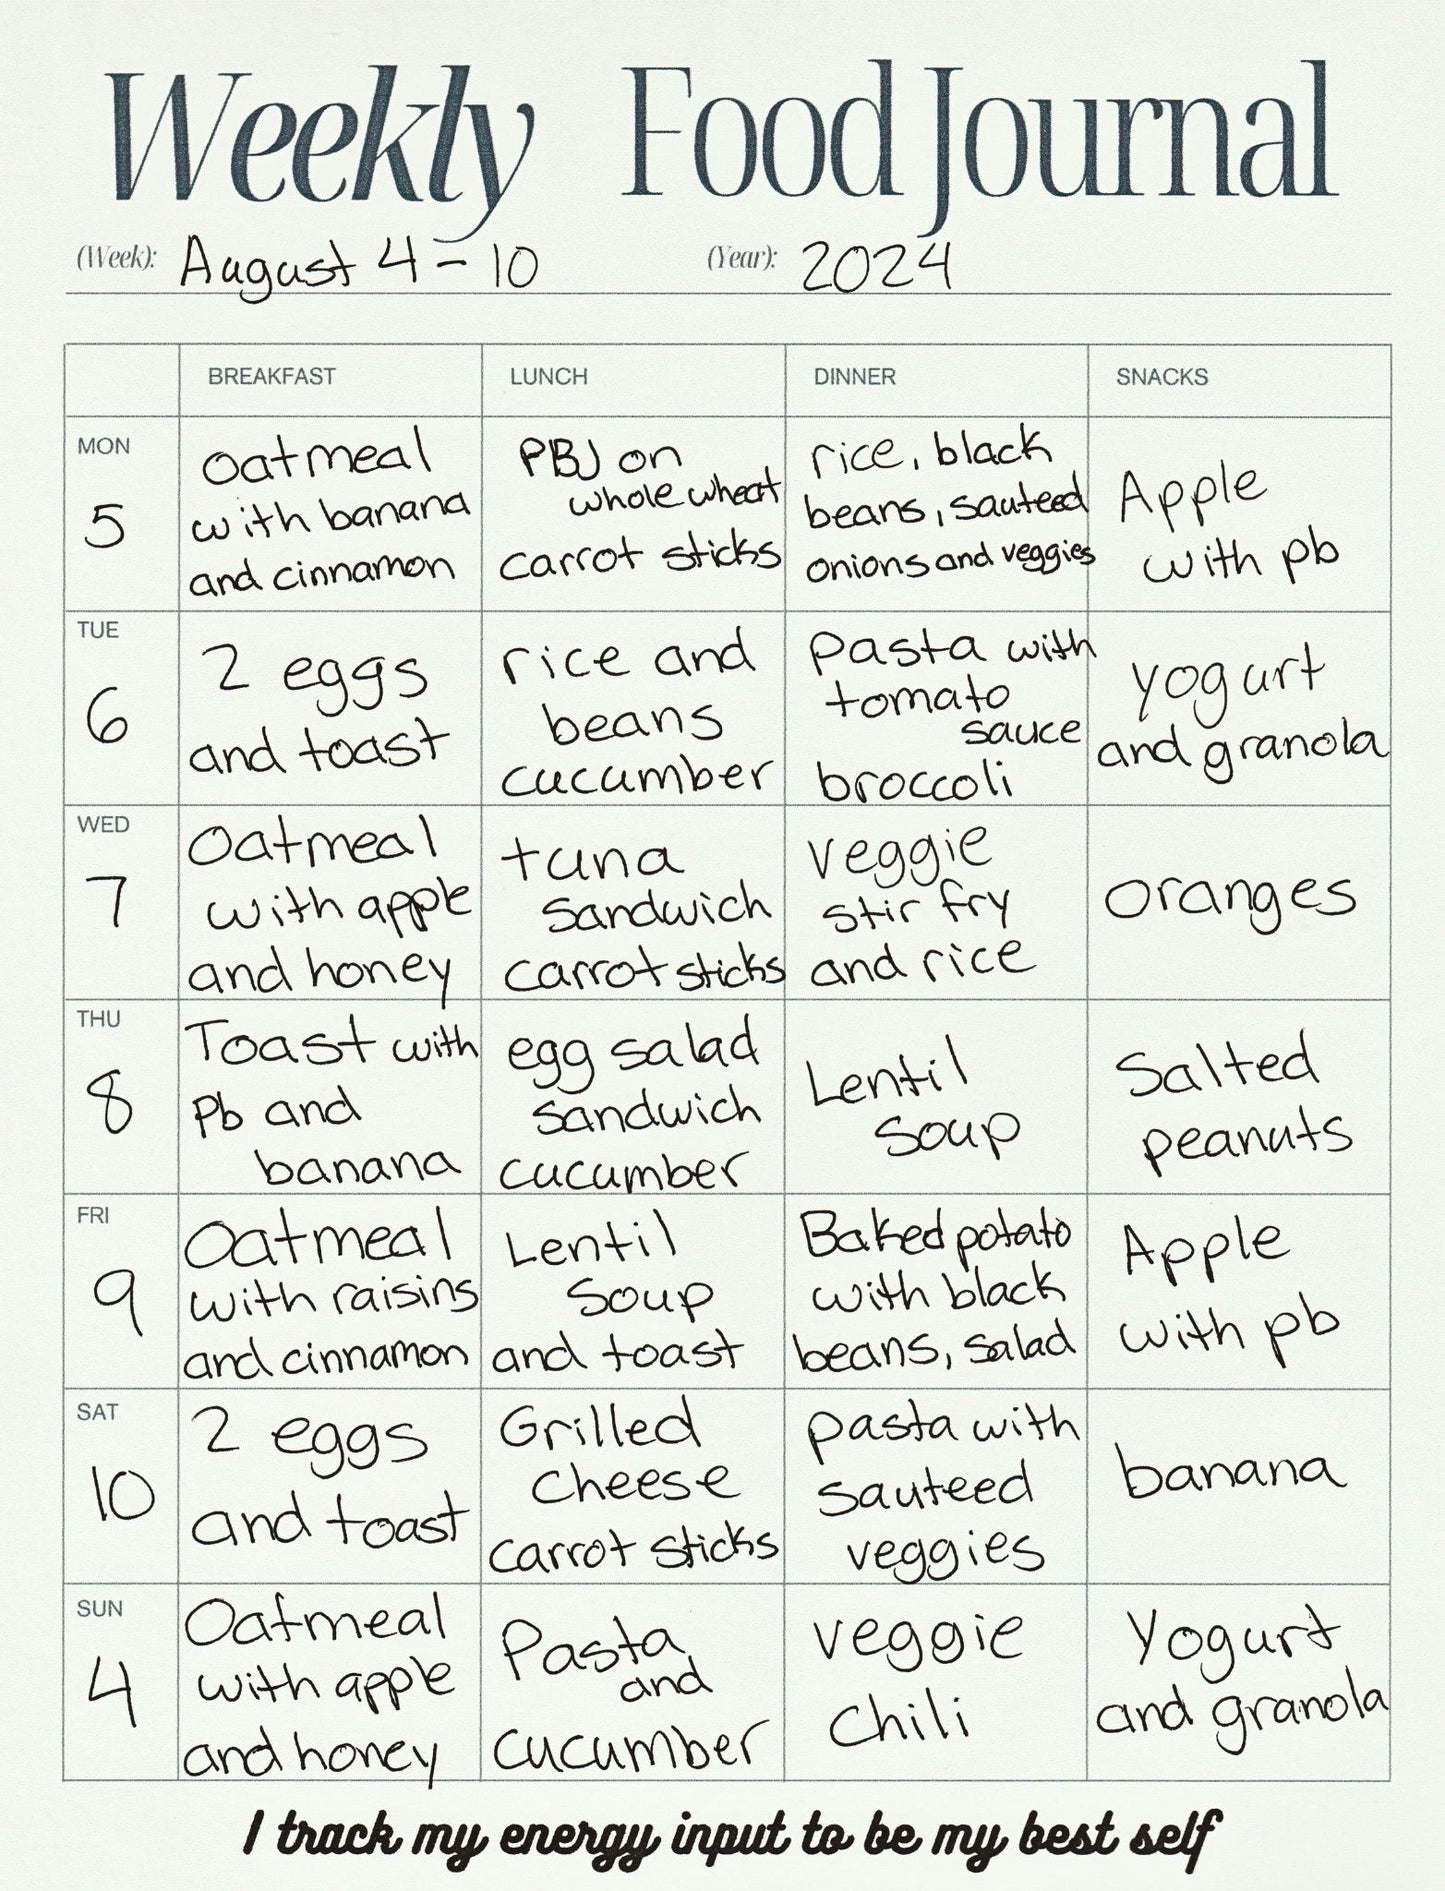 Weekly Food Journal
(Week): August 4 - 10 (Year): 2024
BREAKFAST LUNCH DINNER SNACKS
MON
5
oatmeal
with banana
and cinnamon
PBJ on
whole wheat
carrot sticks
rice, black
beans, sauteed
onions and veggies
Apple
with pb
TUE
6
2 eggs
and toast
rice and
beans
cucumber
Pasta with
tomato
sauce
broccoli
yogurt
and granola
WED
7
Oatmeal
with apple
and honey
tuna
sandwich
carrot sticks
veggie
stir fry
and rice
oranges
THU
8
Toast with
Pb and
banana
egg salad
sandwich
cucumber
Lentil
Soup
Salted
peanuts
FRI
9
Oatmeal
with raisins
and cinnamon
Lentil
Soup
and toast
Baked potato
with black
beans, salad
Apple
with pb
SAT
10
2 eggs
and toast
Grilled
cheese
carrot sticks
pasta with
sauteed
veggies
banana
SUN
4
Oatmeal
with apple
and honey
Pasta
and
cucumber
veggie
chili
Yogurt
and granola
I track my energy input to be my best self